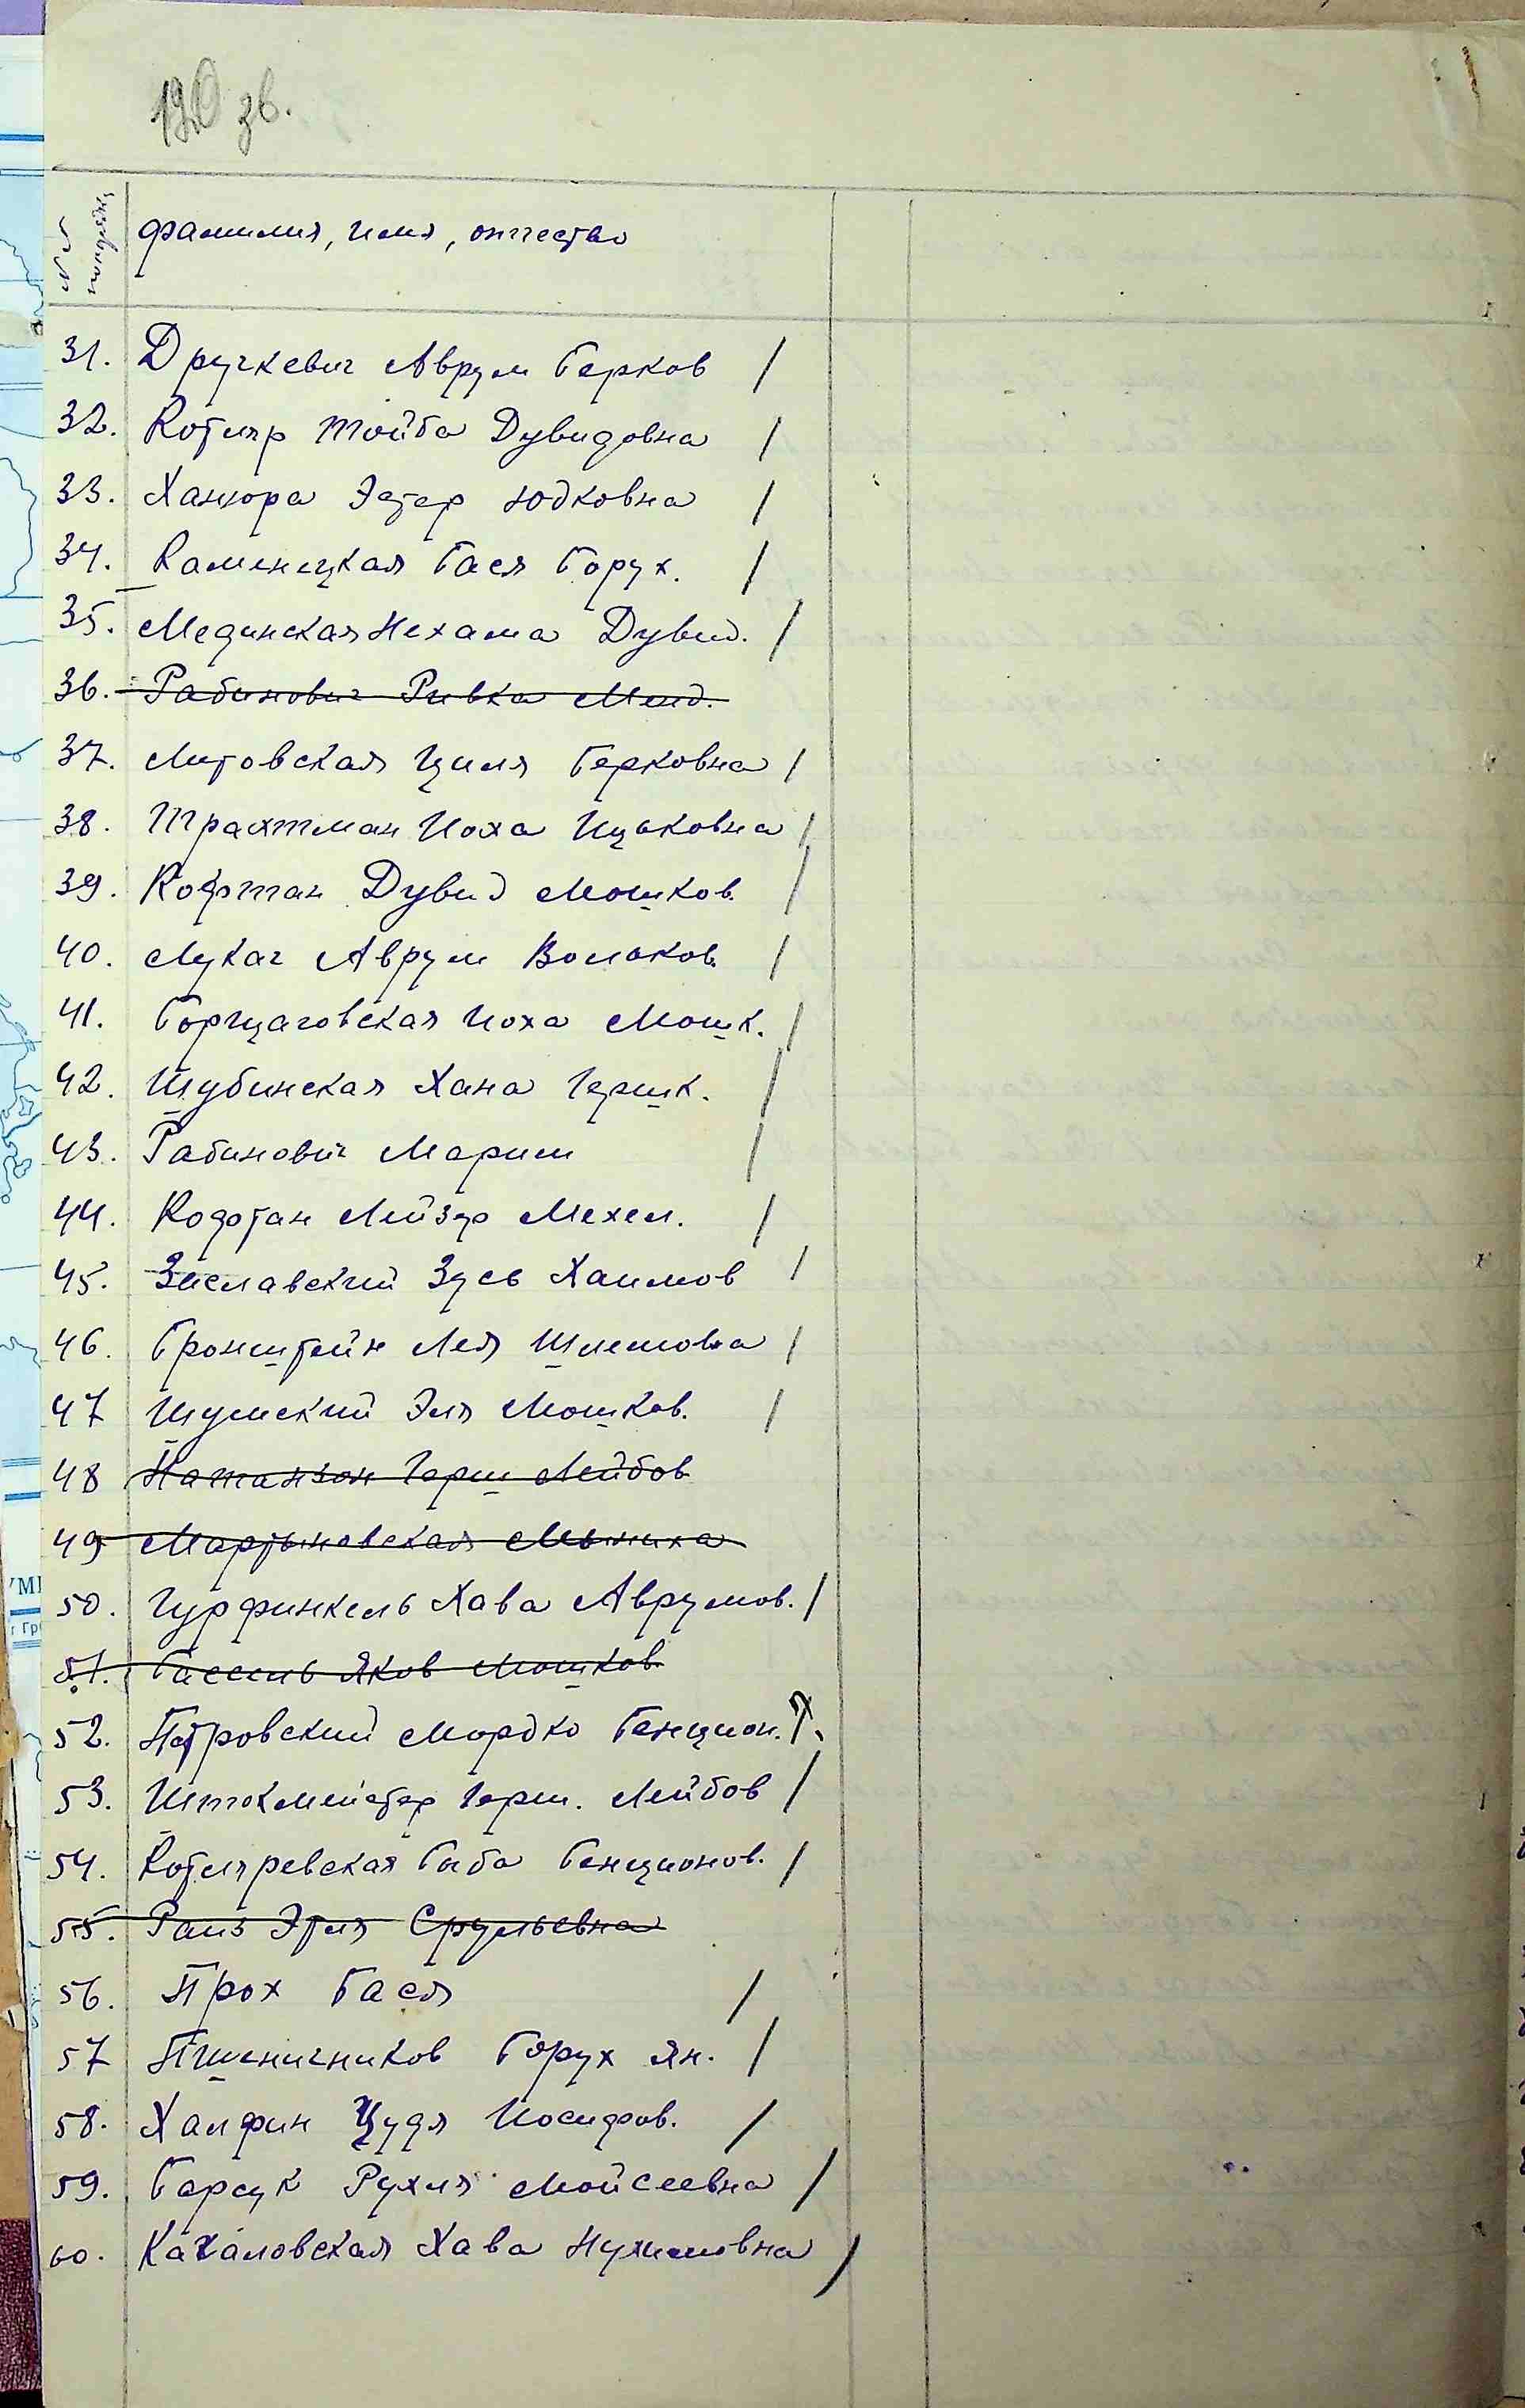 120 зв.
№№ по порядку
фамилия, имя, отчество
31. Дручкевич Аврум Берков /
32. Котляр Тойба Дувидовна /
33. Ханюра Эстер Юдковна /
34. Каменецкая Бася Борух. /
35. Мединская Нехама Дувид. /
36. Рабинович Ривка Менд.
37. Литовская Циля Берковна /
38. Трахтман Иоха Ицьковна /
39. Кофтан Дувид Мошков. /
40. Лукач Аврум Вольков. /
41. Борщаговская Иоха Мошк. /
42. Шубинская Хана Гершк. /
43. Рабинович Марим /
44. Кофтан Лейзер Мехел. /
45. Заславский Зусь Хаимов /
46. Бронштейн Лея Шлемовна /
47 Шумский Эля Мошков. /
48 Натанзон Герш Лейбов
49 Мартыновская Мьниха
50. Гурфинкель Хава Аврумов. /
51. Бассель Яков Мошков.
52. Петровский Мордко Бенцион. /
53. Штокмейстер Герш. Лейбов /
54. Котляревская Быба Бенционов. /
55. Раиз Этля Срульевна
56. Прох Бася /
57 Пшеничников Борух Ян. /
58. Халфин Иудя Иосифов. /
59. Барсук Рухля Мойсеевна /
60. Качаловская Хава Нухимовна /